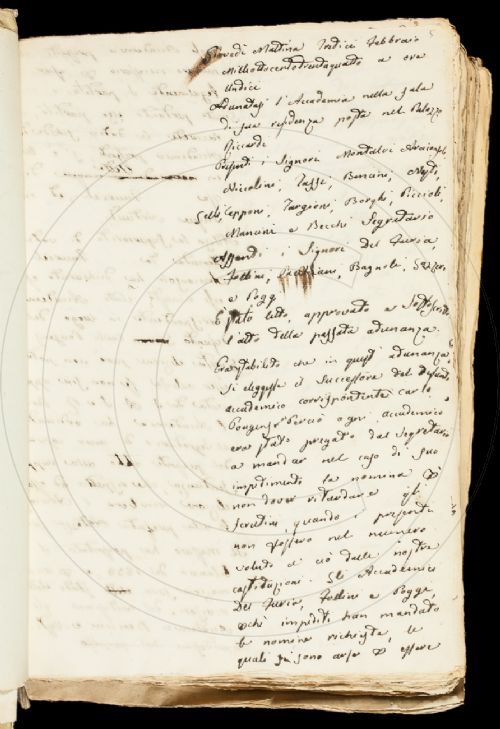 Giovedì Mattina Tredici Febbraio
Milleottocentotrentaquattro a ora
Undici
Adunatasi l'Accademia nella sala
di sua residenza posta nel Palazzo
Riccardi
Presenti i Signori Montalvi Arciconsolo
Niccolini, Tassi, Bencini, Nesti,
Gelli, Capponi, Targioni, Borghi, Piccioli,
Mancini e Becchi Segretario
Assenti i Signori Del Furia,
Follini, Bagnoli,
e Poggi
È stato letto, approvato e sottoscritto
l'atto della passata adunanza.
Era stabilito che in quest' adunanza
si eleggesse il Successore del defunto
accademico corrispondente Carlo
Pougens: Perciò ogni accademico
era stato pregato dal Segretario
a mandar nel caso di suo
impedimento la nomina
non dover ritardare gli
scrutini, quando i presenti
non fossero nel numero
voluto a ciò dalle nostre
costituzioni. Gli Accademici
Del Furia, Follini e Poggi,
che impediti han mandato
le nomine richieste, le
quali si sono arse essere